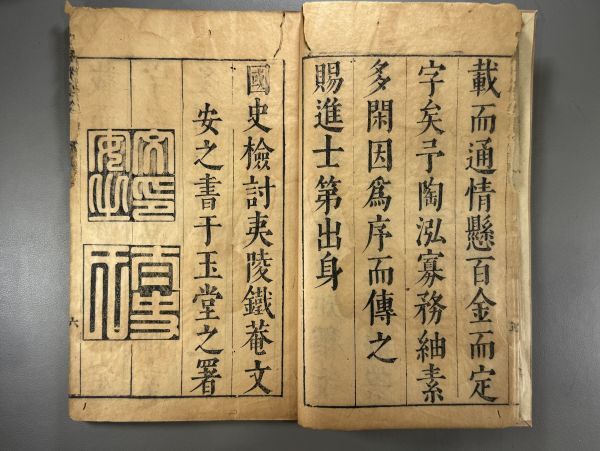 載而通情懸百金而定
字矣予陶泓寡務紬素
多閑因爲序而傳之
賜進士第出身
國史檢討夷陵鐵菴文
安之書于玉堂之署
文印安之
六